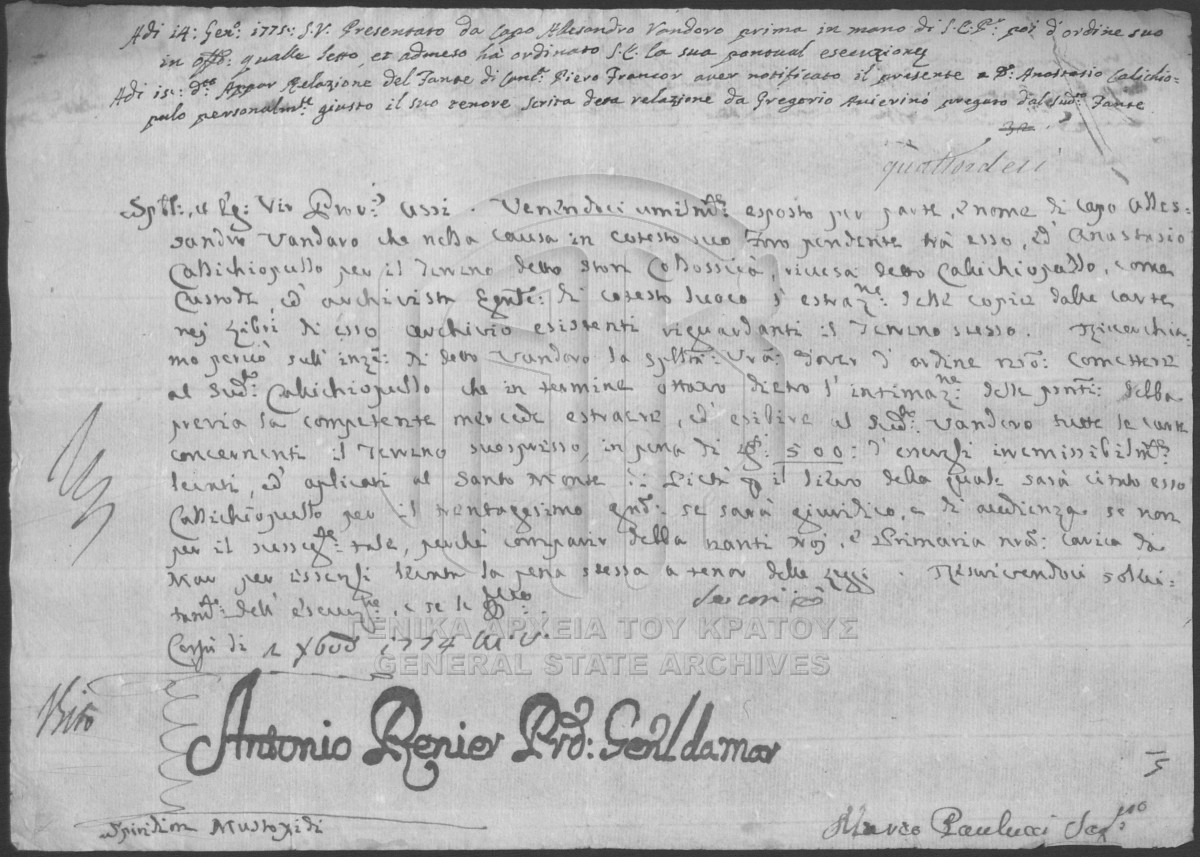 Adi 14: Gen.o 1775: S.V. Presentato da Capo Alesandro Vondoro prima in mano di S.E.P.r poi d'ordine suo
in off.o: qualle letto, et admeso hà ordinato S.E. la sua pontual esecuzione
Adi 15: d.to Appar Relazione del Fante di Cons.o Piero Francor aver notificato il presente a D.n Anastasio Calichio-
pulo personalm.te giusto il suo tenore, scrita detta relazione da Gregorio pregato dal sud.to Fante
quattordeci
Sp:, et Eg: Vir Prov.r Assi. Venendoci umilm.te esposto per parte, e nome di Capo Alles-
sandro Vandoro che nella causa in cotesto suo Foro pendente trà esso, ed' Anastasio
Callichiopullo per il Terreno detto Stora Colossità, ricusa detto Callichiopullo, come
Custode, ed' archivista di cotesto luoco l'estraz.ne delle copie dalle carte
nej Libri di esso archivio esistenti riguardanti il Terreno stesso. Ricerchia-
mo perciò sull' di detto Vandoro la Vrã: dover d'ordine nrõ: comettere
al Sud.to: Callichiopullo che in termine ottavo dietro l'intimaz.ne delle pnti: debba
previa la competente mercede estraere, ed' esibire al sud.to Vandoro tutte le carte
concernenti il Terreno suespresso, in pena di 500: d'esserli iremissibilm.te
levati, ed' aplicati al Santo Monte di Pietà il lievo della quale sarà citato esso
Callichiopullo per il trentagesimo se sarà giuridico, e di audienza se non
per il susseg.te tale, perchè comparir debba nanti Noj, e Primaria nrã: carica da
Mar per esserli levata la pena stessa a tenor delle Leggi. Riscrivendoci solleci-
tam.te dell' esecuz.ne, e se le
Corfù li 1 Xbre 1774 M.V.
Antonio Renier Prõ: Genl da mar
Spiridion Mustoxidi
Marco Paulucci Seg.rio
ΓΕΝΙΚΑ ΑΡΧΕΙΑ ΤΟΥ ΚΡΑΤΟΥΣ
GENERAL STATE ARCHIVES